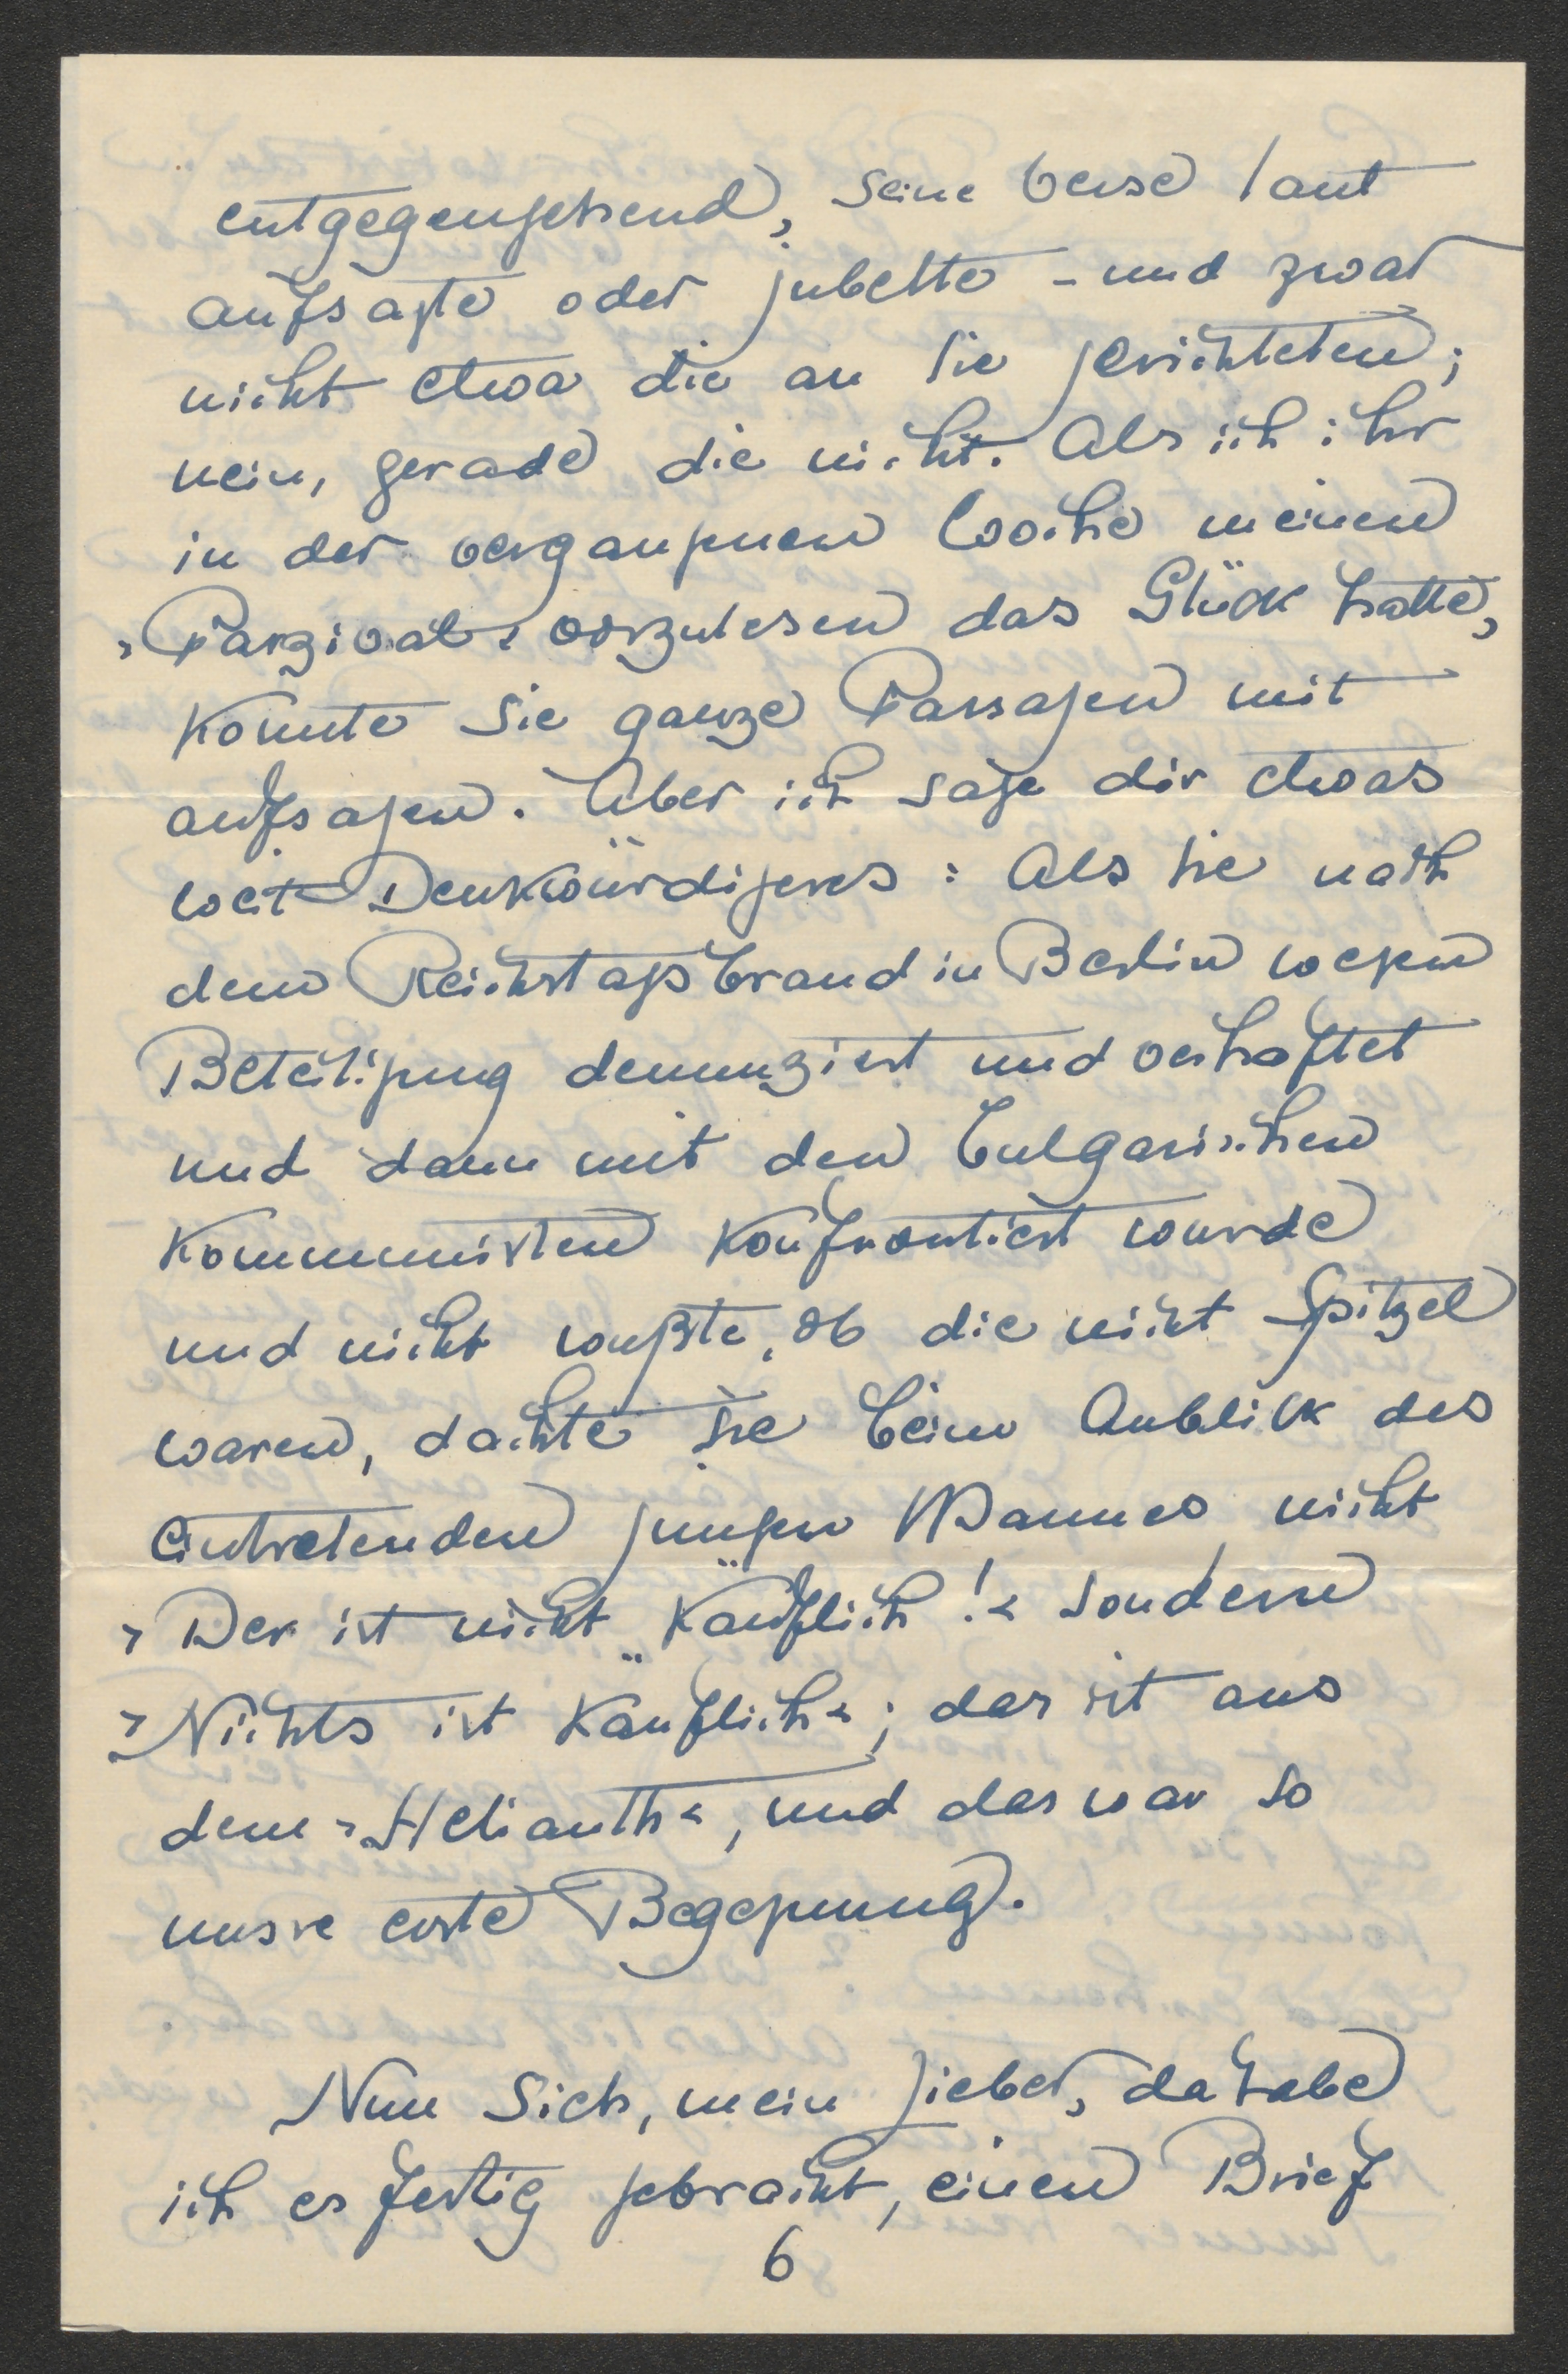 entgegengehend, seine Verse laut
aufsagte oder jubelte - und zwar
nicht etwa die an sie gerichteten;
nein, gerade die nicht. Als ich ihr
in der vergangnen Woche meinen
›Parzival‹ vorzulesen das Glück hatte,
konnte sie ganze Passagen mit
aufsagen. Aber ich sage dir etwas
weit Denkwürdigeres: Als sie nach
dem Reichstagsbrand in Berlin wegen
Beteiligung denunziert und verhaftet
und dann mit den bulgarischen
Kommunisten konfrontiert wurde
und nicht wußte, ob die nicht Spitzel
waren, dachte sie beim Anblick des
eintretenden jungen Mannes nicht
›Der ist nicht käuflich!‹ sondern
›Nichts ist käuflich‹; das ist aus
dem ›Helianth‹, und das war so
unsre erste Begegnung.
Nun sieh, mein Lieber, da habe
ich es fertig gebracht, einen Brief
6